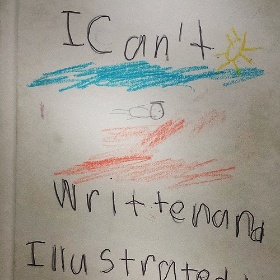 I Can't
Writtenand
Illustrated